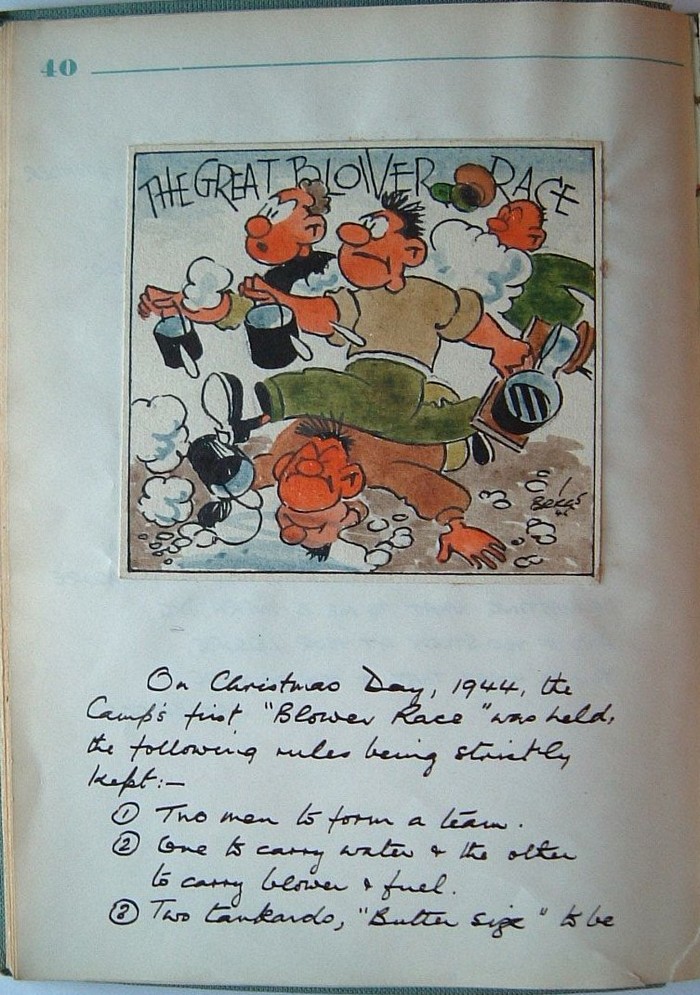 40
THE GREAT BLOWER RACE
Beggs
44
On Christmas Day, 1944, the
Camp's first "Blower Race" was held,
the following rules being strictly
kept:—
① Two men to form a team.
② One to carry water & the other
to carry blower & fuel.
③ Two tankards, "Butter size" to be